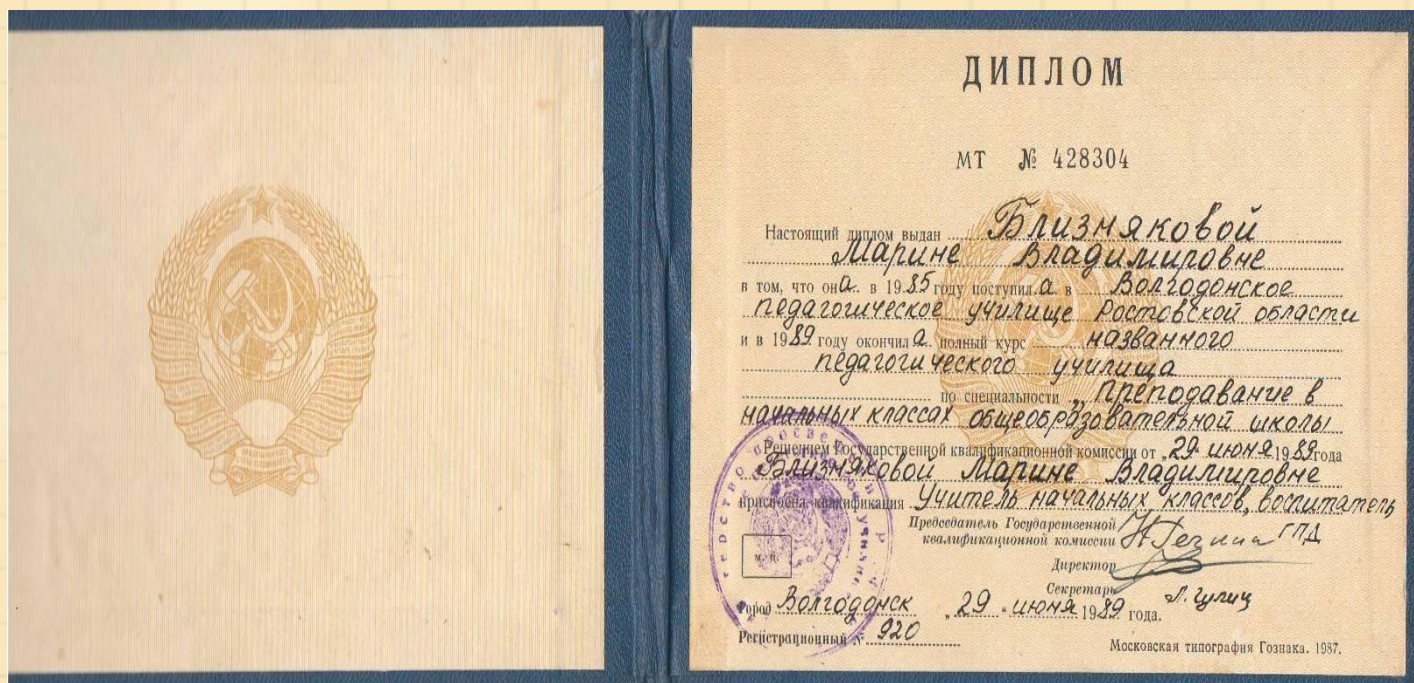 ДИПЛОМ
МТ № 428304
Настоящий диплом выдан Близняковой
Марине Владимировне
в том, что она в 1985 году поступила в Волгодонское
педагогическое училище Ростовской области
и в 1989 году окончила полный курс названного
педагогического училища
по специальности „Преподавание в
начальных классах общеобразовательной школы
Решением Государственной квалификационной комиссии от „29 июня 1989 года
Близняковой Марине Владимировне
присвоена квалификация Учитель начальных классов, воспитатель
ГПД
Председатель Государственной
квалификационной комиссии
Директор
Секретарь
М. П.
Город Волгодонск „29 июня 1989 года.
Регистрационный № 920
Московская типография Гознака. 1987.